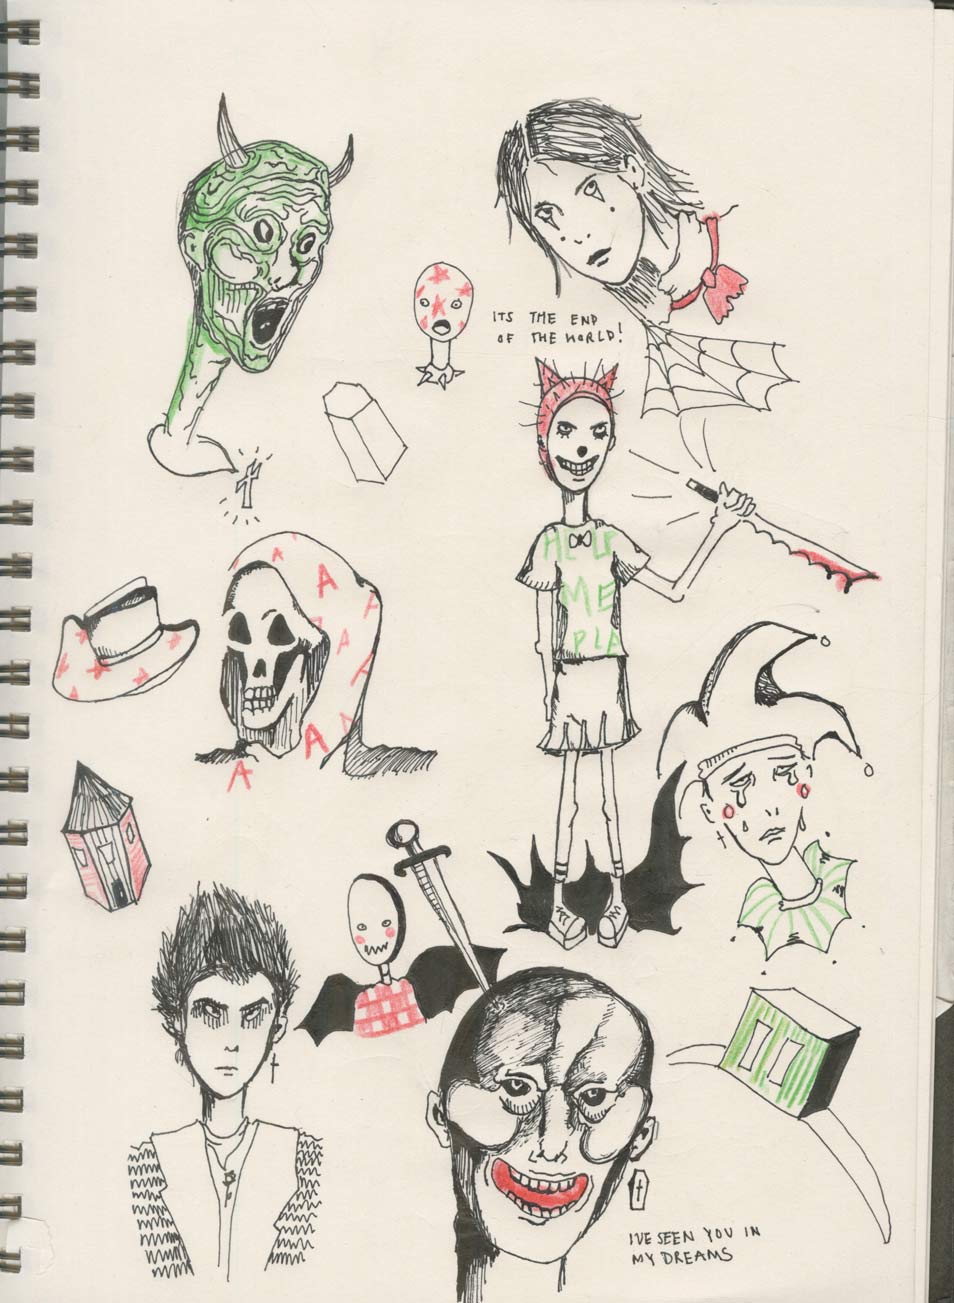 ITS THE END
OF THE WORLD!
HELP
ME
PLA
A
A
A
A
A
A
A
A
A
I'VE SEEN YOU IN
MY DREAMS